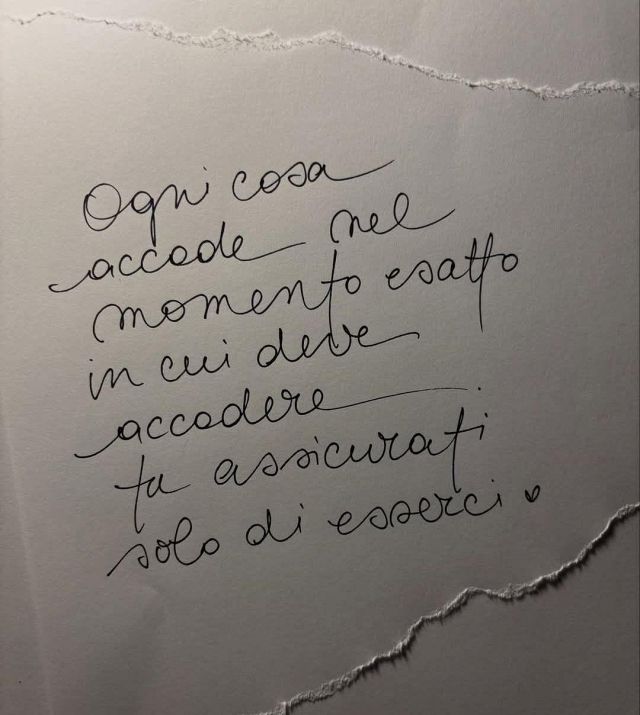 Ogni cosa
accade nel
momento esatto
in cui deve
accadere
tu assicurati
solo di esserci